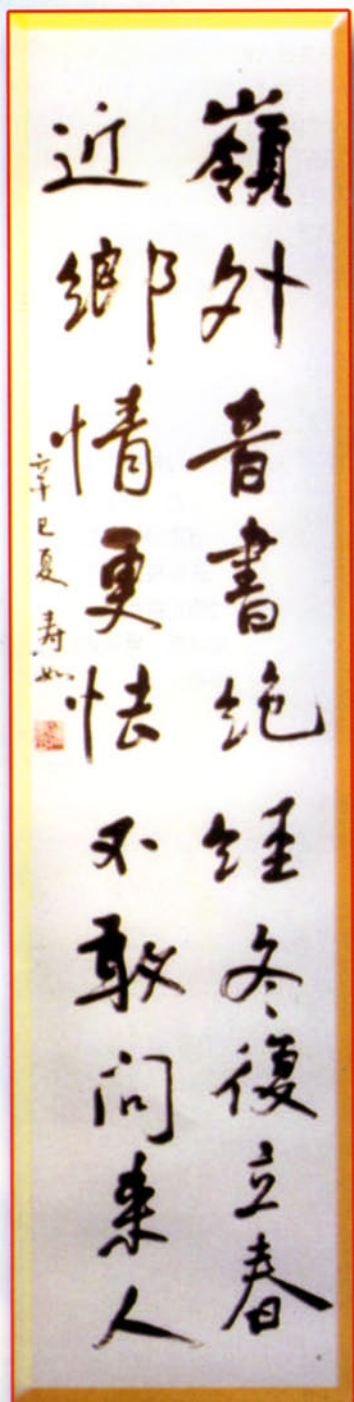 嶺外音書絶經冬復立春
近鄉情更怯不敢問來人
辛巳夏 寿如